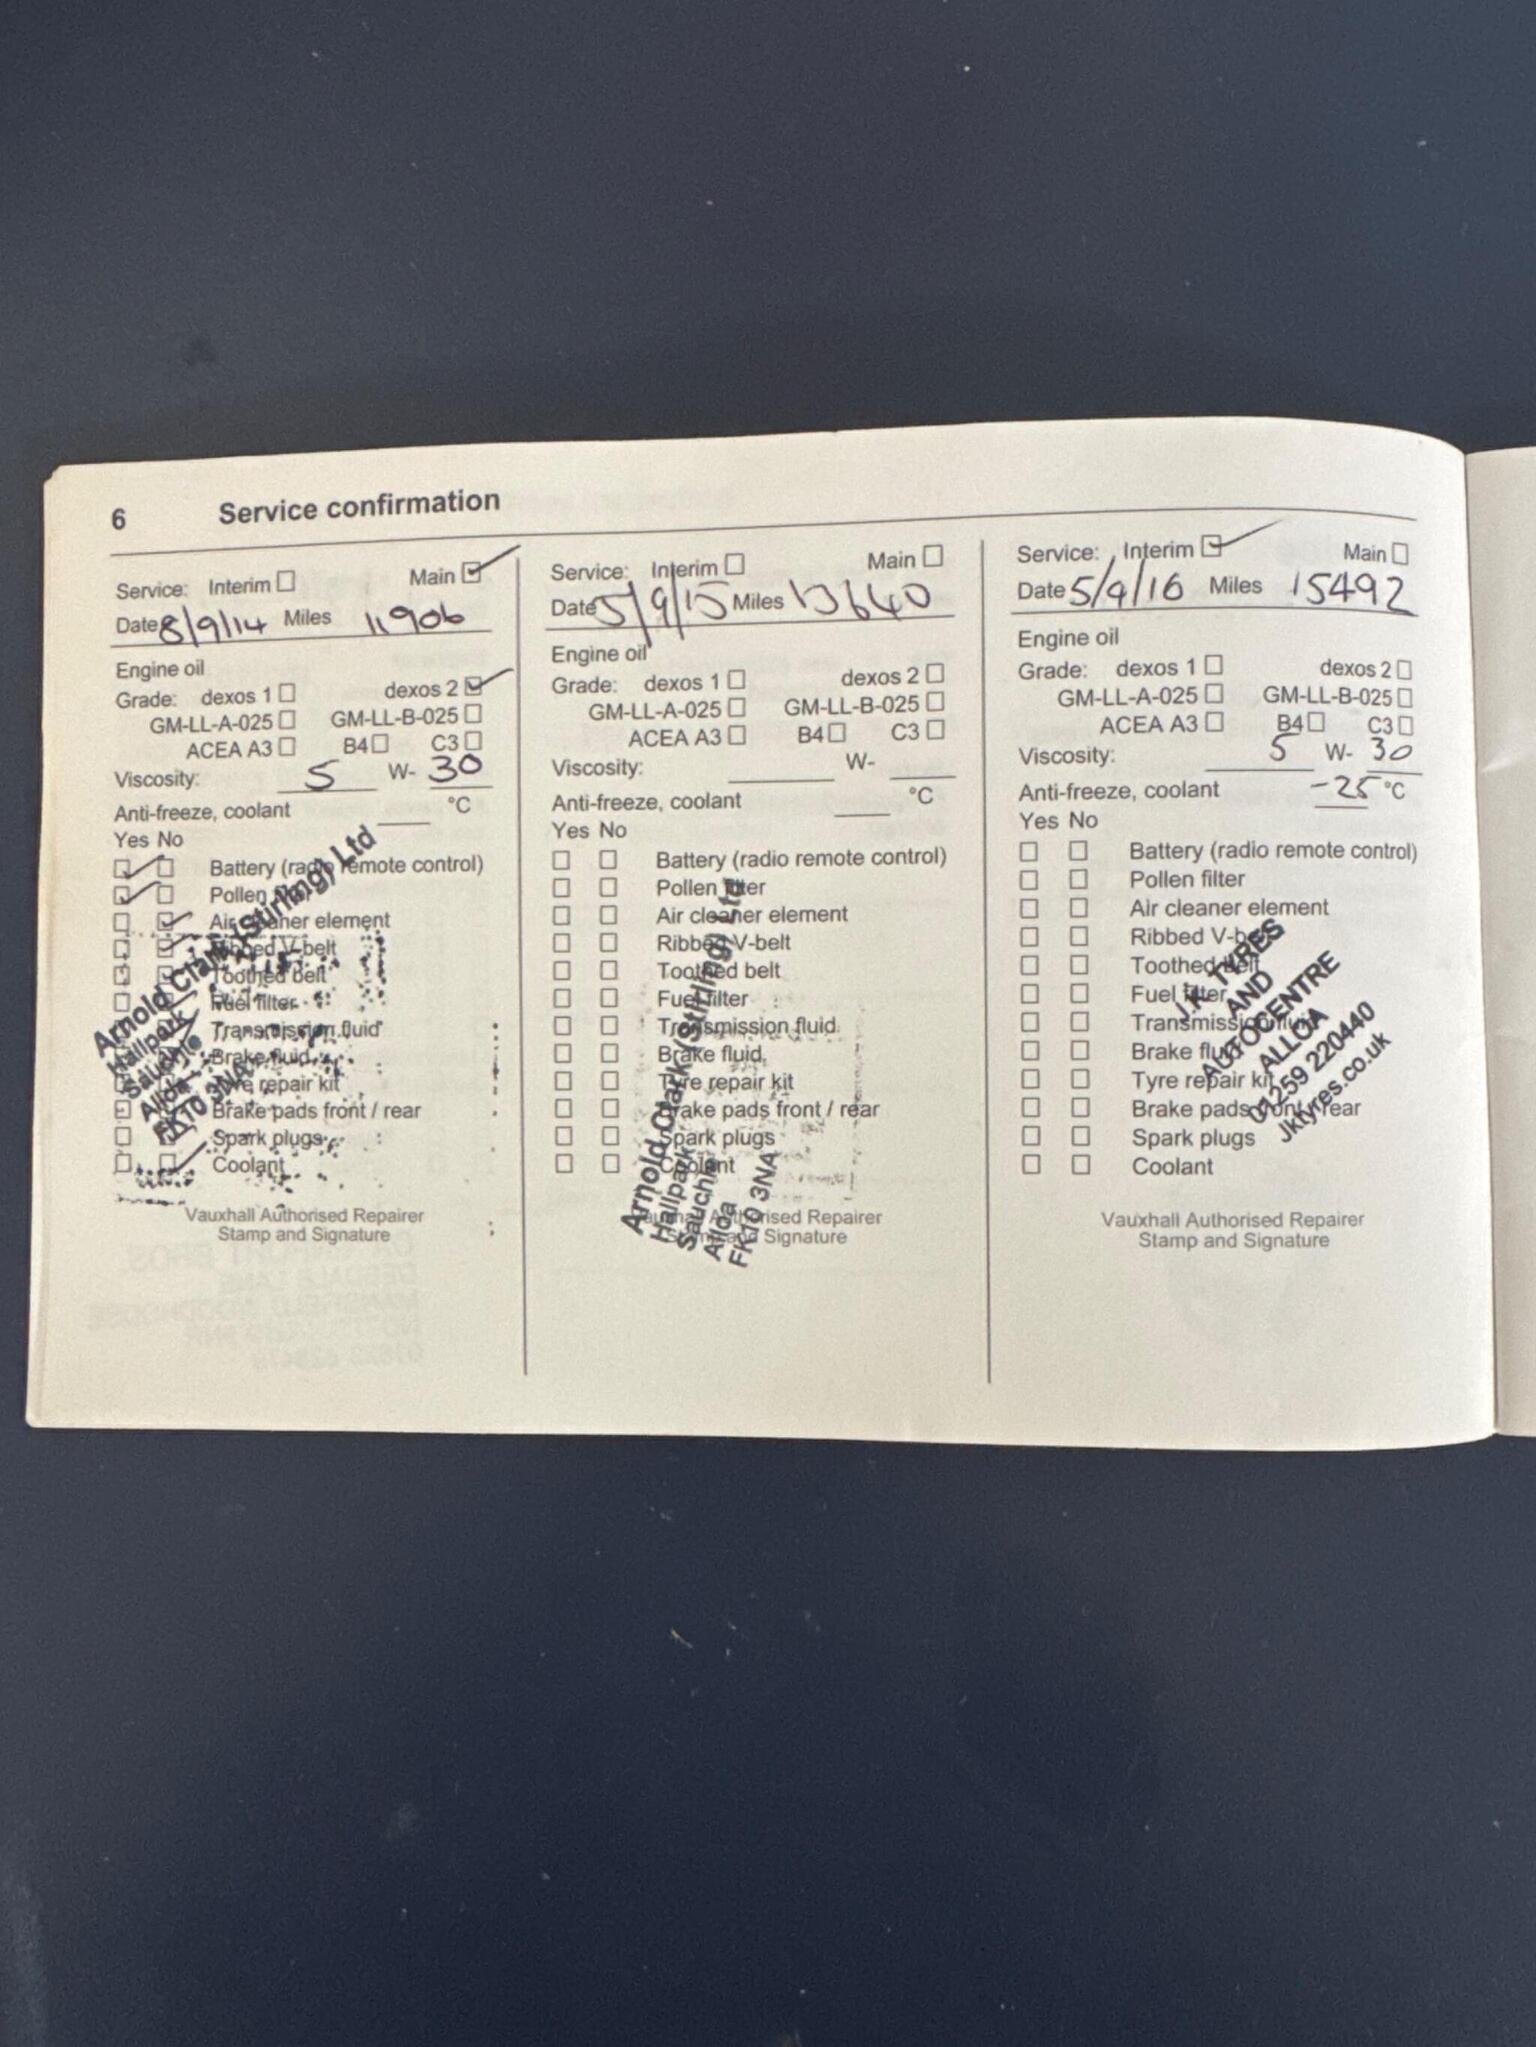 6 Service confirmation
Service: Interim Main
Date 8/9/14 Miles 11906
Engine oil
Grade: dexos 1 dexos 2
GM-LL-A-025 GM-LL-B-025
ACEA A3 B4 C3
Viscosity: 5 W- 30
Anti-freeze, coolant °C
Yes No
Battery (radio remote control)
Pollen filter
Air cleaner element
Ribbed V-belt
Toothed belt
Fuel filter
Transmission fluid
Brake fluid
Tyre repair kit
Brake pads front / rear
Spark plugs
Coolant
Arnold Clark (Stirling) Ltd
Hallpark
Sauchie
Alloa
FK10 3NA
Vauxhall Authorised Repairer
Stamp and Signature
Service: Interim Main
Date 5/9/15 Miles 13640
Engine oil
Grade: dexos 1 dexos 2
GM-LL-A-025 GM-LL-B-025
ACEA A3 B4 C3
Viscosity: W-
Anti-freeze, coolant °C
Yes No
Battery (radio remote control)
Pollen filter
Air cleaner element
Ribbed V-belt
Toothed belt
Fuel filter
Transmission fluid
Brake fluid
Tyre repair kit
Brake pads front / rear
Spark plugs
Coolant
Arnold Clark (Stirling) Ltd
Hallpark
Sauchie
Alloa
FK10 3NA
Vauxhall Authorised Repairer
Stamp and Signature
Service: Interim Main
Date 5/9/16 Miles 15492
Engine oil
Grade: dexos 1 dexos 2
GM-LL-A-025 GM-LL-B-025
ACEA A3 B4 C3
Viscosity: 5 W- 30
Anti-freeze, coolant -25 °C
Yes No
Battery (radio remote control)
Pollen filter
Air cleaner element
Ribbed V-belt
Toothed belt
Fuel filter
Transmission fluid
Brake fluid
Tyre repair kit
Brake pads front / rear
Spark plugs
Coolant
J.K. TYRES
AND
AUTOCENTRE
ALLOA
01259 220440
Jktyres.co.uk
Vauxhall Authorised Repairer
Stamp and Signature